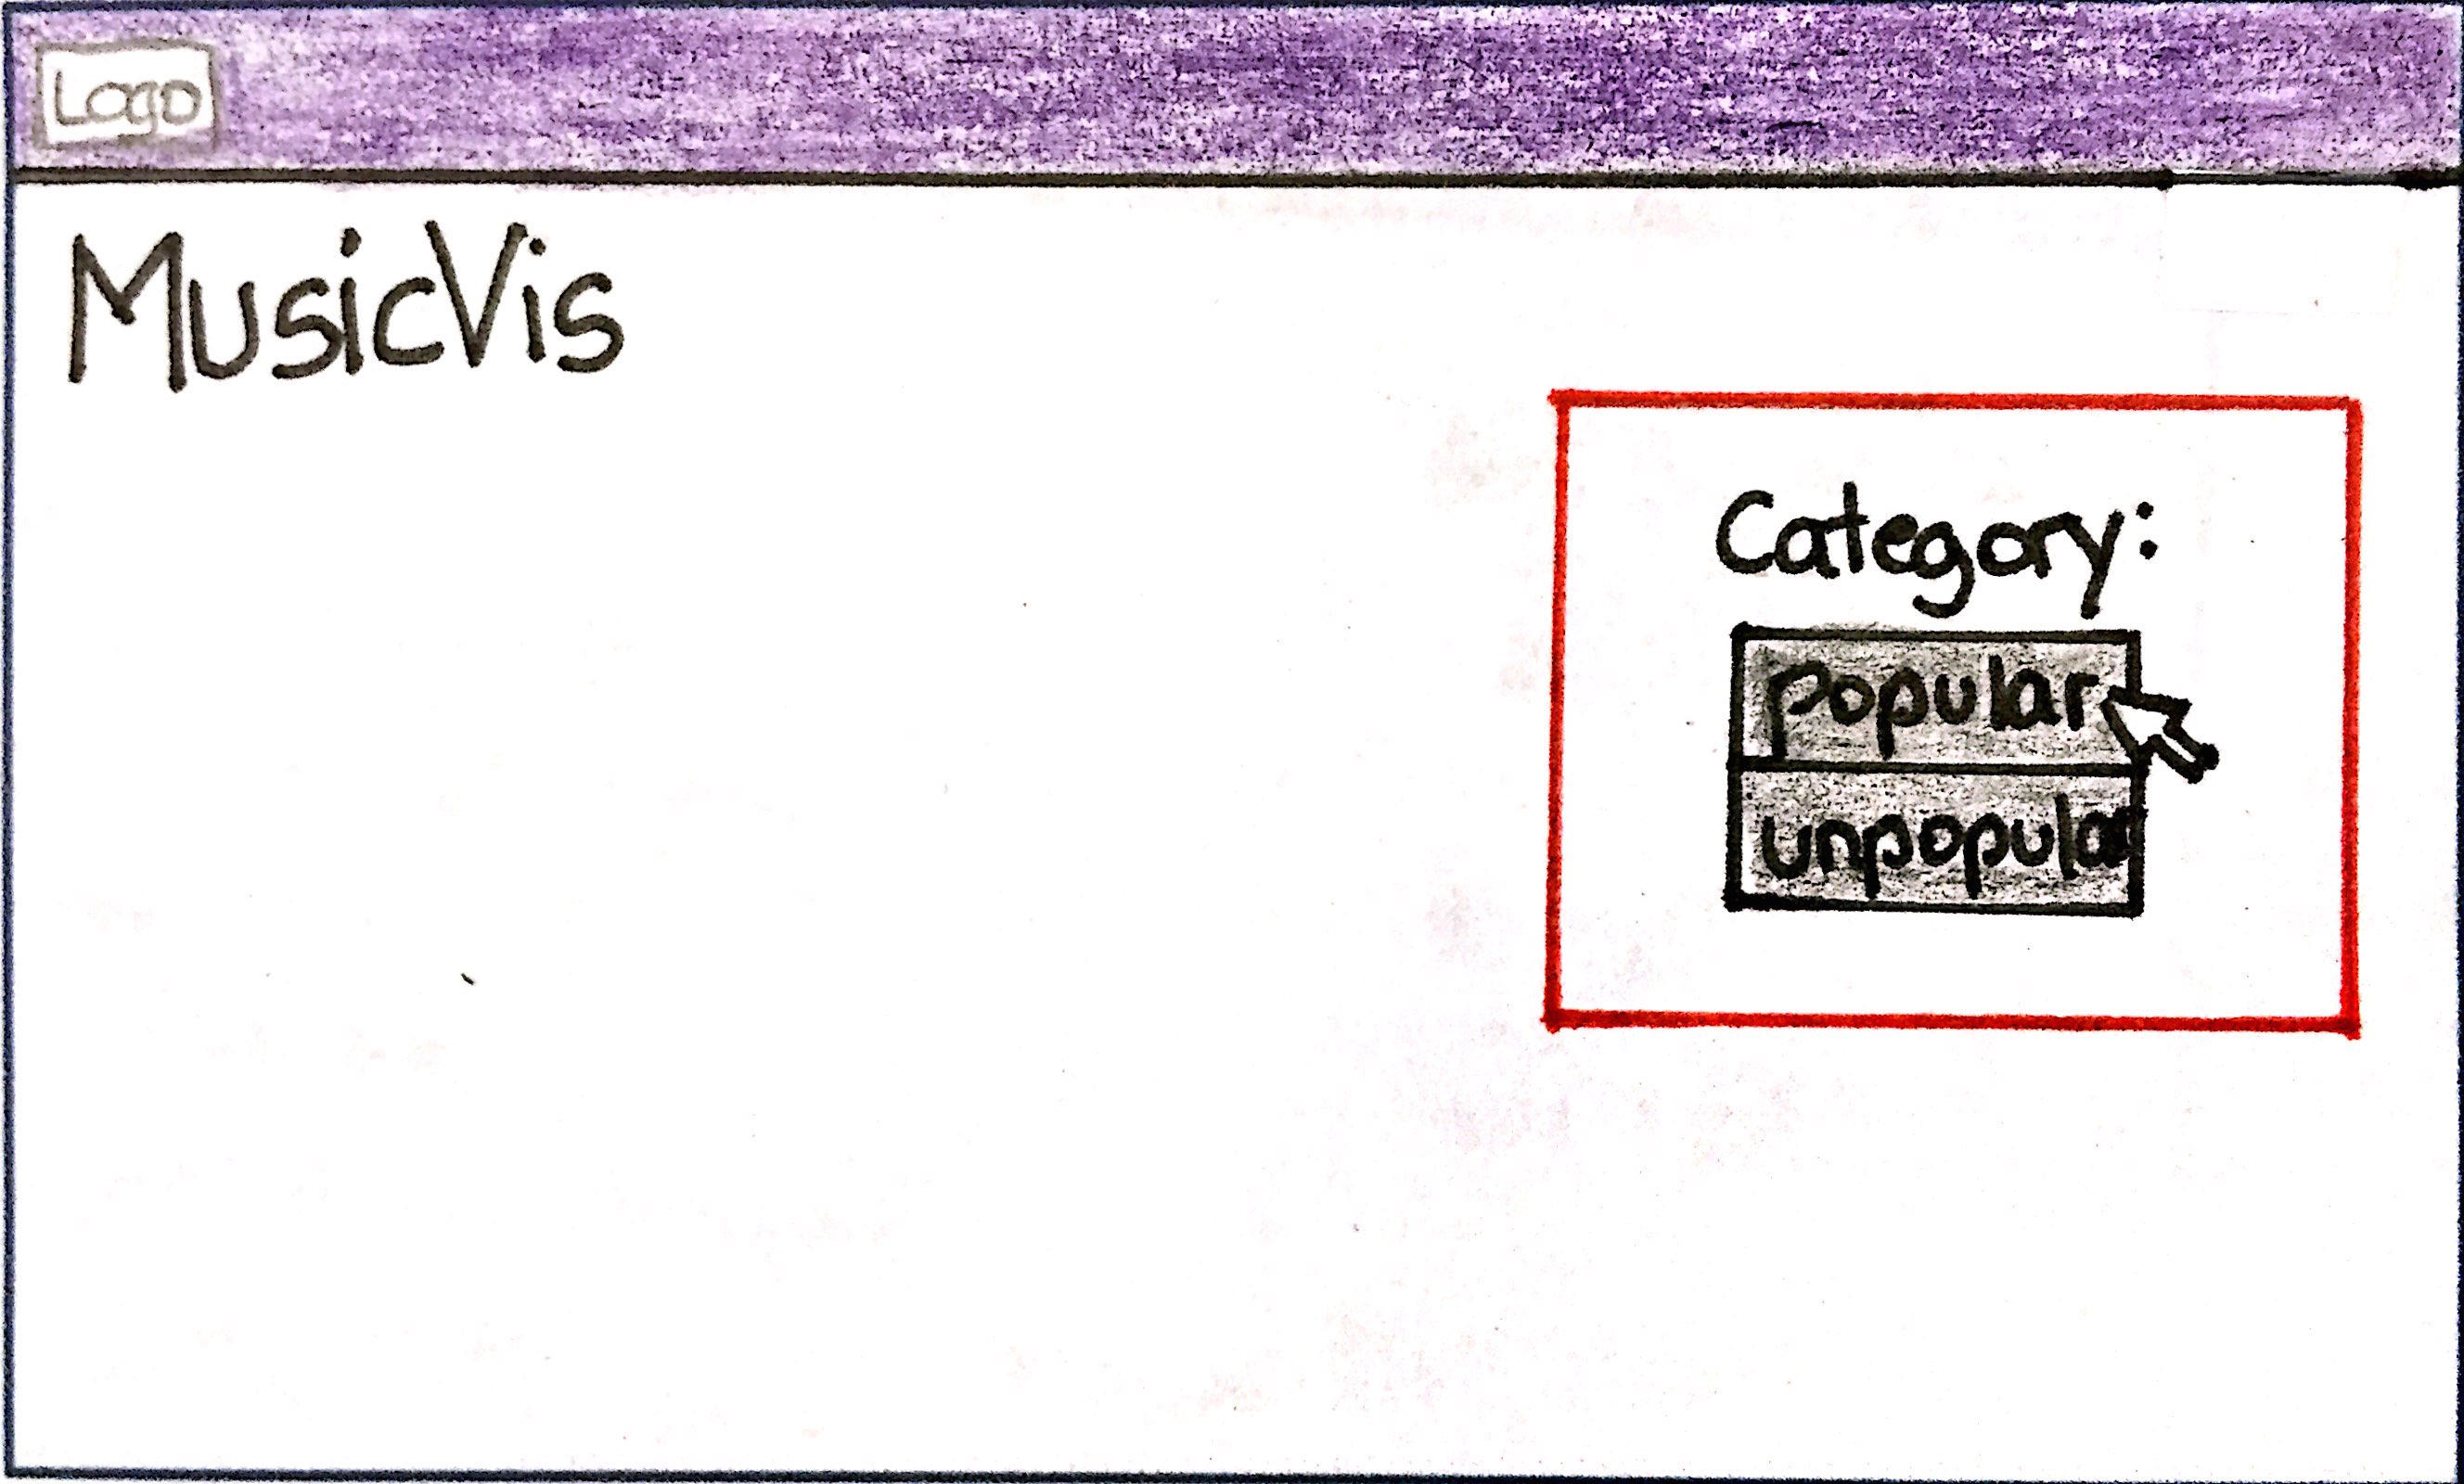 Logo
MusicVis
Category:
popular
unpopular